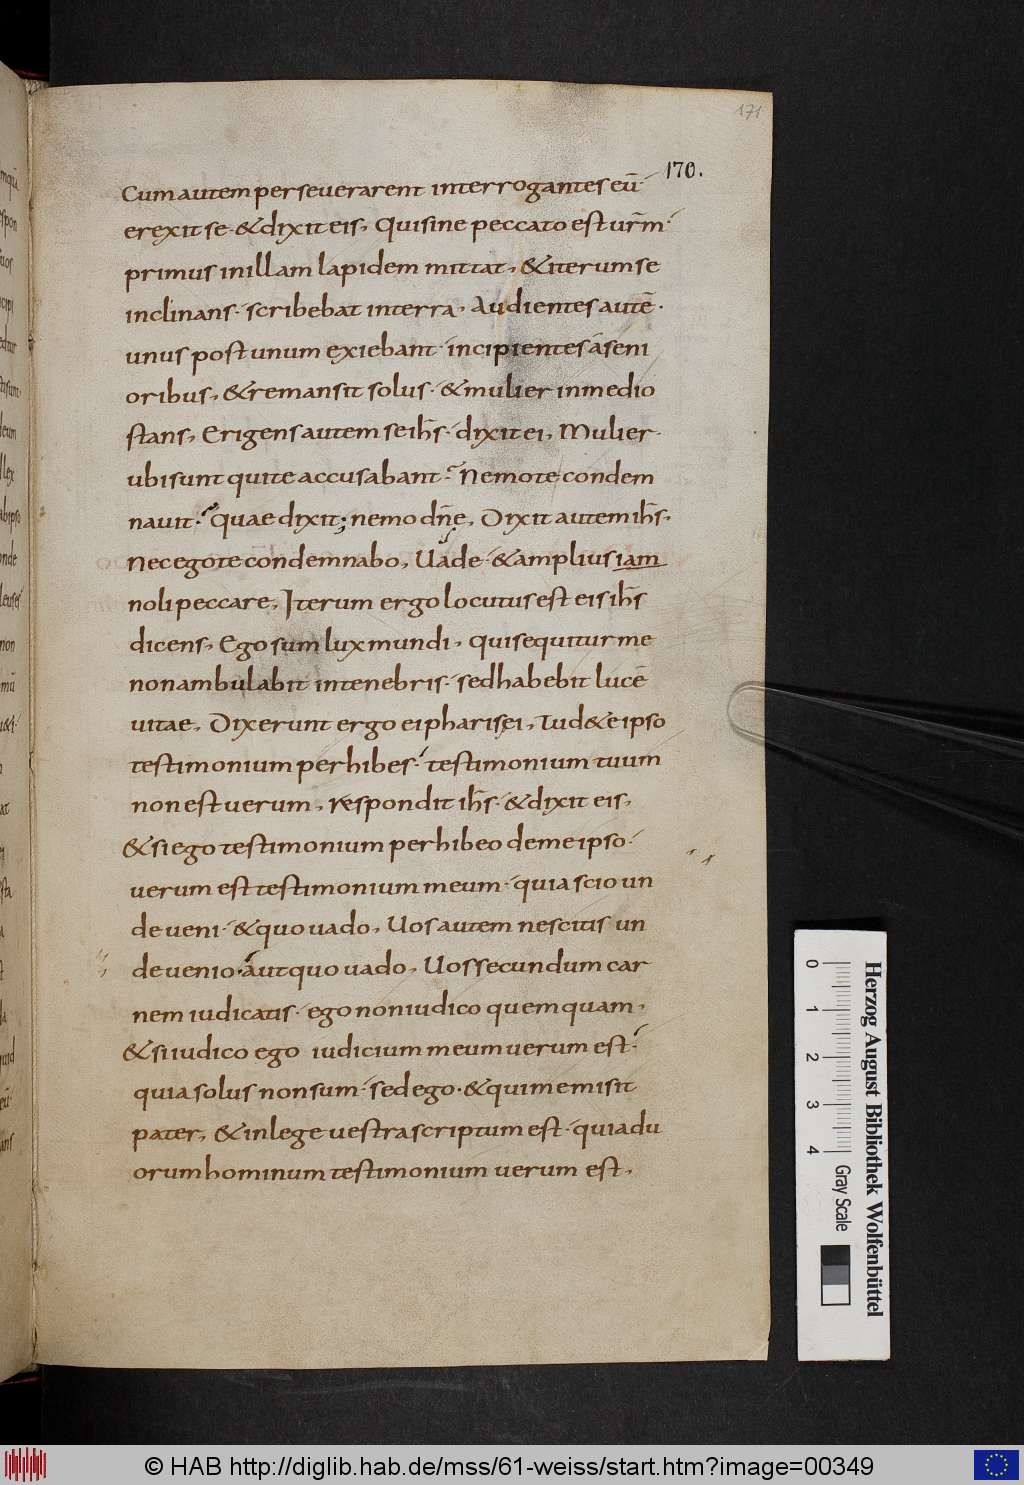 171
170.
Cum autem perseverarent interrogantes eū·
erexit se· & dixit eis, Qui sine peccato est urm̄·
primus in illam lapidem mittat, & iterum se
inclinans· scribebat in terra, Audientes autē·
unus post unum exiebant· incipientes a seni
oribus, & remansit solus· & mulier in medio
stans, Erigens autem se ihs̄· dixit ei, Mulier·
ubi sunt qui te accusabant· Nemo te condem
nauit· quae dixit; nemo dn̄e, Dixit autem ihs̄,
Nec ego te condemnabo, Uade· & amplius iam
noli peccare, Iterum ergo locutus est eis ihs̄
dicens, Ego sum lux mundi, qui sequitur me
non ambulabit in tenebris· sed habebit lucē
vitae, Dixerunt ergo ei pharisei, Tu de te ipso
testimonium perhibes· testimonium tuum
non est uerum, respondit ihs̄· & dixit eis,
& si ego testimonium perhibeo de me ipso·
uerum est testimonium meum· quia scio un
de ueni· & quo uado, Uos autem nescitis un
de uenio· aut quo uado, Uos secundum car
nem iudicatis· ego non iudico quemquam,
& si iudico ego iudicium meum uerum est·
quia solus non sum· sed ego· & qui me misit
pater, & in lege uestra scriptum est· quia du
orum hominum testimonium uerum est,
0 1 2 3 4
Gray Scale
Herzog August Bibliothek Wolfenbüttel
© HAB http://diglib.hab.de/mss/61-weiss/start.htm?image=00349